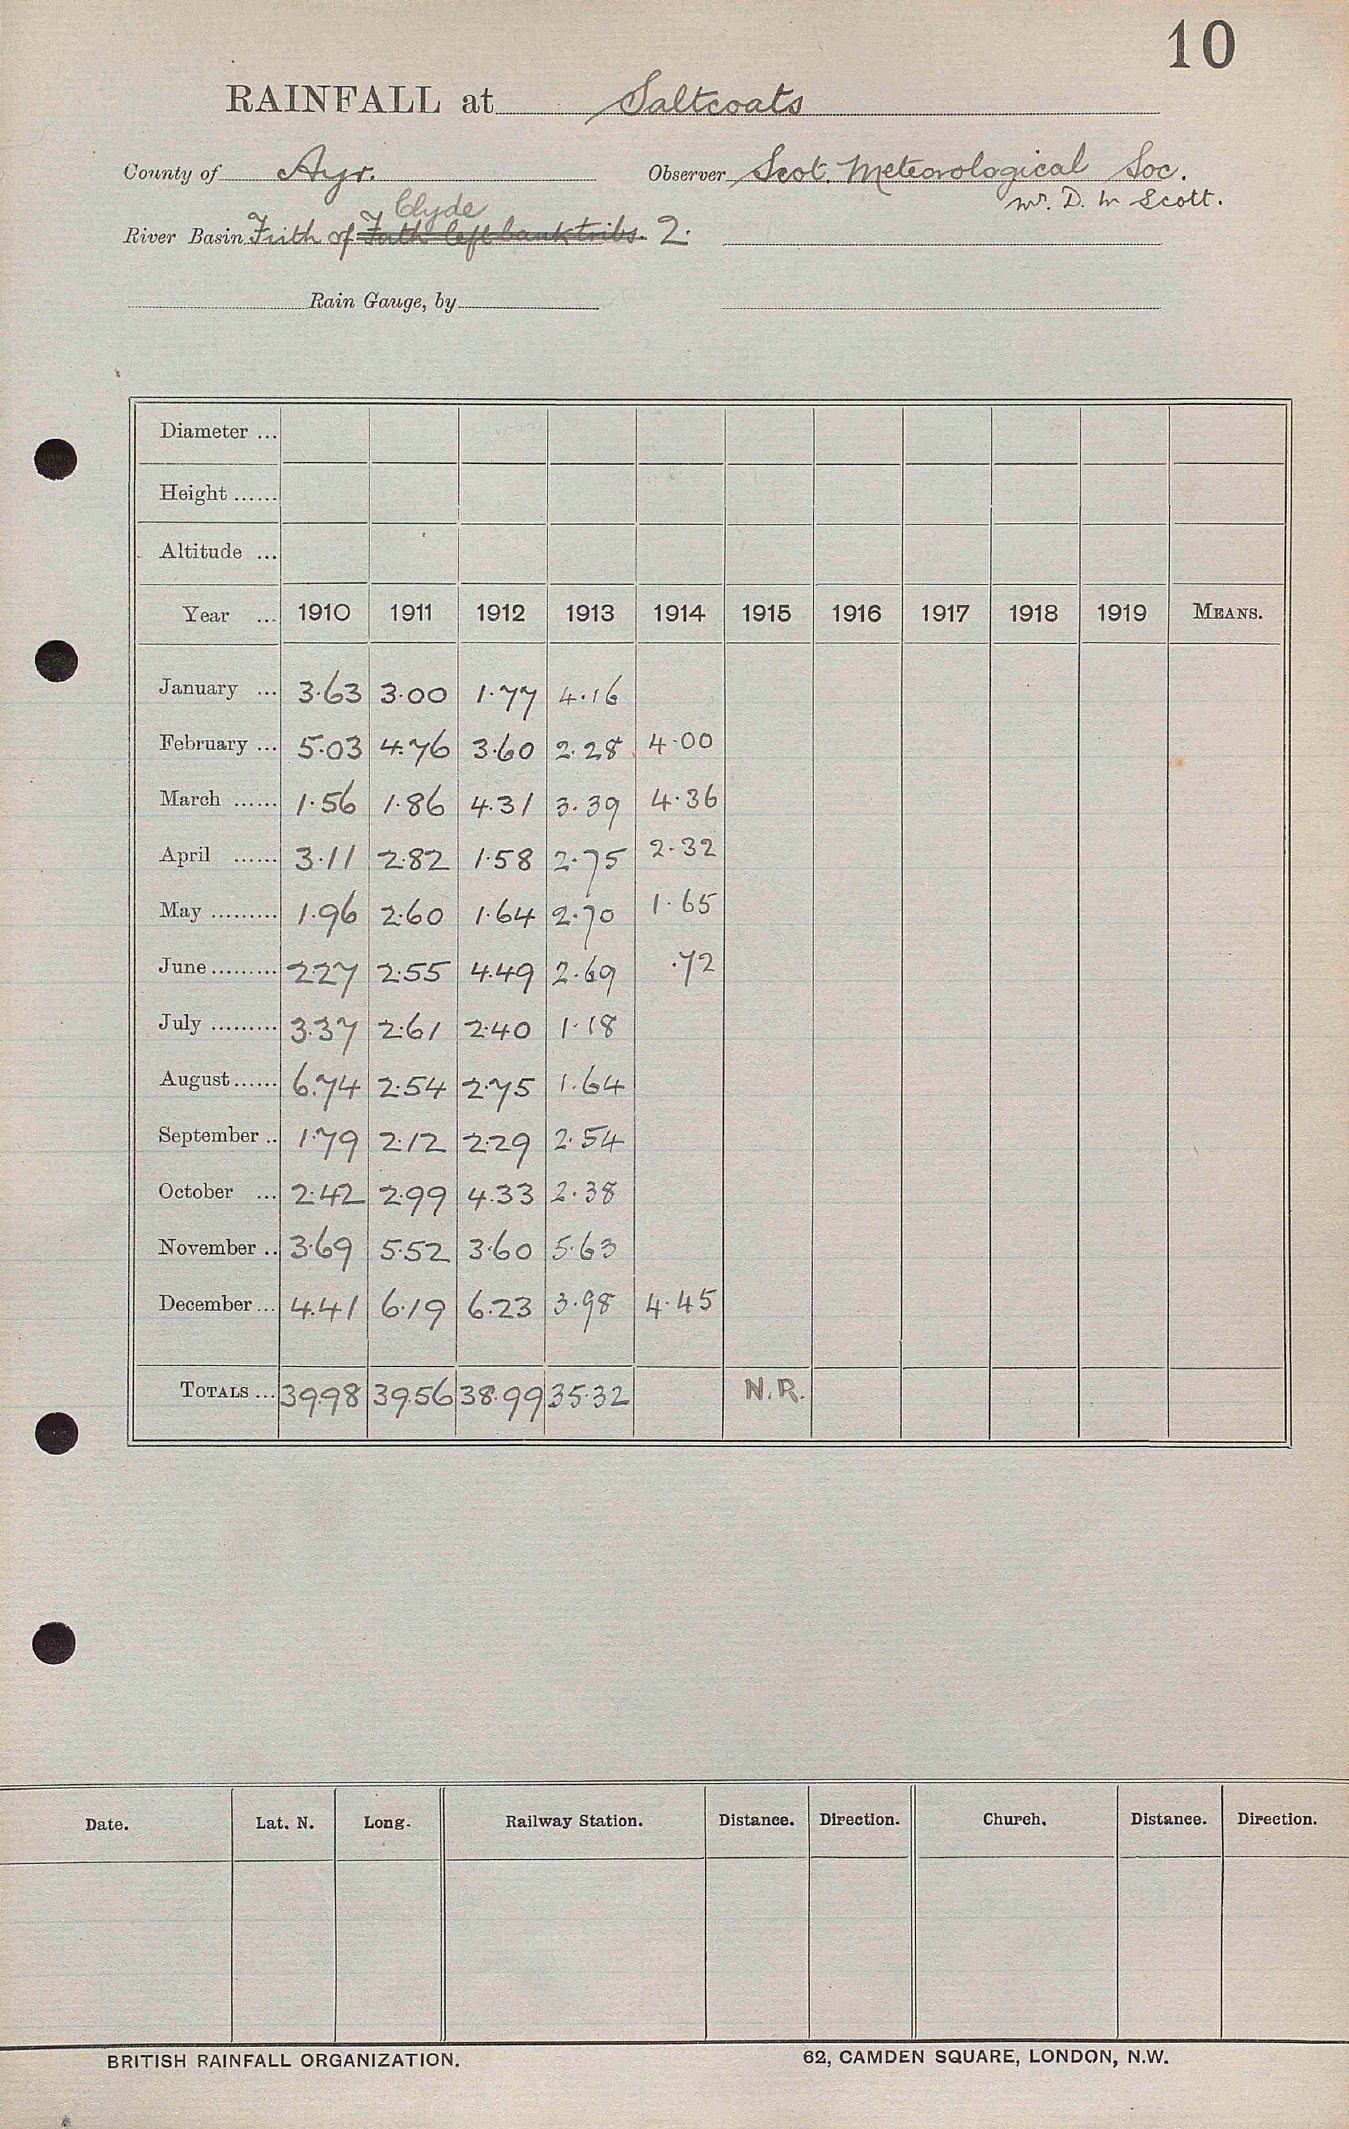 10
RAINFALL at Saltcoats
County of Ayr. Observer Scot. Meteorological Soc.
Mr. D. M Scott.
Clyde
River Basin Frith of Forth left bank tribs. 2.
Rain Gauge, by
Diameter ...
Height ......
Altitude ...
Year ... 1910 1911 1912 1913 1914 1915 1916 1917 1918 1919 MEANS.
January ... 3.63 3.00 1.77 4.16
February ... 5.03 4.76 3.60 2.28 4.00
March ...... 1.56 1.86 4.31 3.39 4.36
April ...... 3.11 2.82 1.58 2.75 2.32
May ......... 1.96 2.60 1.64 2.70 1.65
June ......... 2.27 2.55 4.49 2.69 .72
July ......... 3.37 2.61 2.40 1.18
August ...... 6.74 2.54 2.75 1.64
September .. 1.79 2.12 2.29 2.54
October ... 2.42 2.99 4.33 2.38
November .. 3.69 5.52 3.60 5.63
December ... 4.41 6.19 6.23 3.98 4.45
TOTALS ... 39.98 39.56 38.99 35.32 N.R.
Date. Lat. N. Long. Railway Station. Distance. Direction. Church. Distance. Direction.
BRITISH RAINFALL ORGANIZATION. 62, CAMDEN SQUARE, LONDON, N.W.